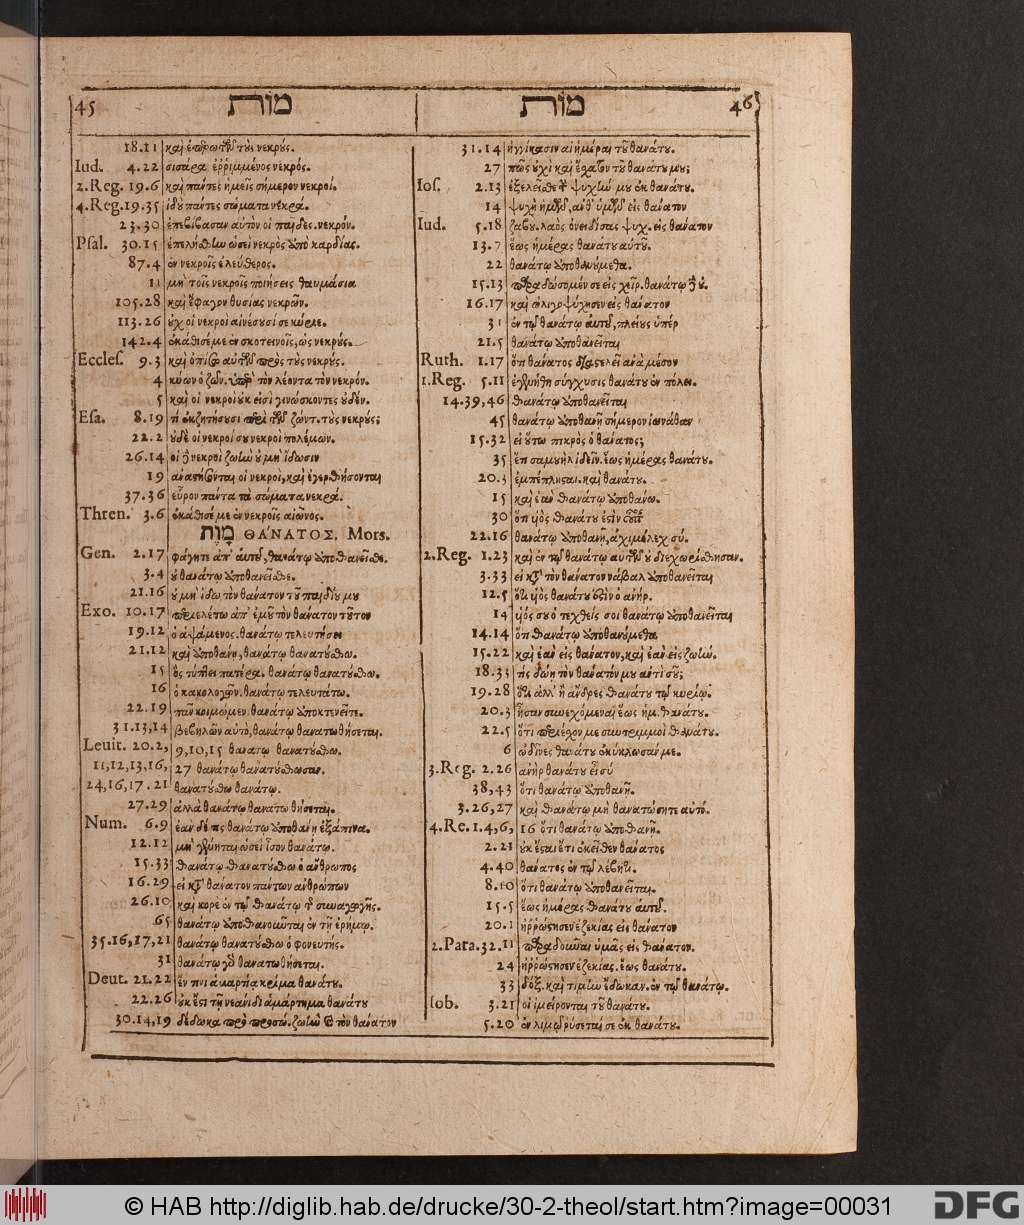 45 מות
18.11 καὶ ἐπερωτῶν τοὺς νεκρούς.
Iud. 4.22 σισάρα ἐῤῥιμμένος νεκρός.
2.Reg. 19.6 καὶ πάντες ἡμεῖς σήμερον νεκροί.
4.Reg.19.35 ἰδοὺ πάντες σώματα νεκρά.
23.30 ἐπεβίβασαν αὐτὸν οἱ παῖδες.νεκρόν.
Psal. 30.15 ἐπελήσθην ὡσεὶ νεκρὸς ἀπὸ καρδίας.
87.4 ἐν νεκροῖς ἐλεύθερος.
11 μὴ τοῖς νεκροῖς ποιήσεις θαυμάσια
105.28 καὶ ἔφαγον θυσίας νεκρῶν.
113.26 οὐχ οἱ νεκροὶ αἰνέσουσί σε κύριε.
142.4 ἐκάθισέ με ἐν σκοτεινοῖς, ὡς νεκρούς.
Eccles. 9.3 καὶ ὀπίσω αὐτῶν πρὸς τοὺς νεκρούς.
4 κύων ὁ ζῶν. ὑπὲρ τὸν λέοντα τὸν νεκρόν.
5 καὶ οἱ νεκροὶ οὐκ εἰσὶ γινώσκοντες οὐδέν.
Esa. 8.19 τί ἐκζητήσουσι περὶ τῶν ζώντ. τοὺς νεκρούς;
22.2 οὐδὲ οἱ νεκροί σου νεκροὶ πολέμων.
26.14 οἱ δὲ νεκροὶ ζωὴν οὐ μὴ ἴδωσιν
19 ἀναστήσονται οἱ νεκροὶ, καὶ ἐγερθήσονται
37.36 εὗρον πάντα τὰ σώματα νεκρά.
Thren. 3.6 ἐκάθισέ με ἐν νεκροῖς αἰῶνος.
מָוֶת ΘΑ΄ΝΑΤΟΣ, Mors.
Gen. 2.17 φάγητε ἀπ' αὐτοῦ, θανάτῳ ἀποθανεῖσθε.
3.4 οὐ θανάτῳ ἀποθανεῖσθε.
21.16 οὐ μὴ ἴδω τὸν θάνατον τοῦ παιδίου μου
Exo. 10.17 περιελέτω ἀπ' ἐμοῦ τὸν θάνατον τοῦτον
19.12 ὁ ἁψάμενος. θανάτῳ τελευτήσει
21.12 καὶ ἀποθάνῃ, θανάτῳ θανατούσθω.
15 ὃς τύπτει πατέρα. θανάτῳ θανατούσθω.
16 ὁ κακολογῶν. θανάτῳ τελευτάτω.
22.19 πᾶν κοιμώμεν. θανάτῳ ἀποκτενεῖτε.
31.13,14 βεβηλῶν αὐτὸ, θανάτῳ θανατωθήσεται.
Leuit. 20.2, 9,10,15 θανάτῳ θανατούσθω.
11,12,13,16, 27 θανάτῳ θανατούσθωσαν.
24,16,17.21 θανατούσθω θανάτῳ.
27.29 ἀλλὰ θανάτῳ θανατωθήσεται.
Num. 6.9 ἐὰν δέ τις θανάτῳ ἀποθάνῃ ἐξάπινα.
12.12 μὴ γένηται ὡσεὶ ἴσον θανάτῳ.
15.33 θανάτῳ θανατούσθω ὁ ἄνθρωπος
16.29 εἰ κατὰ θάνατον πάντων ἀνθρώπων
26.10 καὶ κορὲ ἐν τῷ θανάτῳ τῆς συναγωγῆς.
65 θανάτῳ ἀποθανοῦνται ἐν τῇ ἐρήμῳ.
35.16,17,21 θανάτῳ θανατούσθω ὁ φονευτής.
31 θανάτῳ γὰρ θανατωθήσεται.
Deut. 21.22 ἔν τινι ἁμαρτία κρίμα θανάτου.
22.26 οὐκ ἔστι τῇ νεανίδι ἁμάρτημα θανάτου
30.14,19 δέδωκα πρὸ προσώ. ζωὴν καὶ τὸν θάνατον
מות 46
31.14 ἠγγίκασιν αἱ ἡμέραι τοῦ θανάτου.
27 πῶς οὐχὶ καὶ ἔσχατον τοῦ θανάτου μου;
Ios. 2.13 ἐξελεῖσθε τὴν ψυχήν μου ἐκ θανάτου.
14 ψυχὴ ἡμῶν, ἀνθ' ὑμῶν εἰς θάνατον
Iud. 5.18 ζαβου. λαὸς ὀνειδίσας ψυχ. εἰς θάνατον
13.7 ἕως ἡμέρας θανάτου αὐτοῦ.
22 θανάτῳ ἀποθανούμεθα.
15.13 παραδώσομέν σε εἰς χεῖρ. θανάτῳ δὲ οὐ.
16.17 καὶ ὠλιγοψύχησεν εἰς θάνατον
31 ἐν τῷ θανάτῳ αὐτοῦ, πλείους ὑπὲρ
21.5 θανάτῳ ἀποθανεῖται
Ruth. 1.17 ὅτι θάνατος διαστελεῖ ἀνὰ μέσον
1.Reg. 5.11 ἐγενήθη σύγχυσις θανάτου ἐν πόλει.
14.39,46 θανάτῳ ἀποθανεῖται
45 θανάτῳ ἀποθανῇ σήμερον ἰωνάθαν
15.32 εἰ οὕτω πικρὸς ὁ θάνατος;
35 ἔτι σαμουὴλ ἰδεῖν. ἕως ἡμέρας θανάτου.
20.3 ἐμπέπλησται. καὶ θανάτου.
15 καὶ ἐὰν θανάτῳ ἀποθάνω.
30 ὅτι υἱὸς θανάτου ἐστὶν οὗτος
22.16 θανάτῳ ἀποθανῇ, ἀχιμέλεχ σύ.
2.Reg. 1.23 καὶ ἐν τῷ θανάτῳ αὐτῶν οὐ διεχωρίσθησαν.
3.33 εἰ κατὰ τὸν θάνατον νάβαλ ἀποθανεῖται
12.5 ὅτι υἱὸς θανάτου ἐστὶν ὁ ἀνήρ.
14 υἱός σου ὁ τεχθείς σοι θανάτῳ ἀποθανεῖται
14.14 ὅτι θανάτῳ ἀποθανούμεθα
15.22 καὶ ἐὰν εἰς θάνατον, καὶ ἐὰν εἰς ζωήν.
18.33 τίς δῴη τὸν θάνατόν μου ἀντὶ σοῦ;
19.28 ὅτι ἀλλ' ἢ ἄνδρες θανάτου τῷ κυρίῳ.
20.3 ἦσαν συνεχόμεναι ἕως ἡμ. θανάτου.
22.5 ὅτι περιέσχον με συντριμμοὶ θανάτου.
6 ὠδῖνες θανάτου ἐκύκλωσάν με.
3.Reg. 2.26 ἀνὴρ θανάτου εἶ σύ
38,43 ὅτι θανάτῳ ἀποθανῇ.
3.26,27 καὶ θανάτῳ μὴ θανατώσητε αὐτό.
4.Re.1.4,6, 16 ὅτι θανάτῳ ἀποθανῇ.
2.21 οὐκ ἔσται ἔτι ἐκεῖθεν θάνατος
4.40 θάνατος ἐν τῷ λέβητι.
8.10 ὅτι θανάτῳ ἀποθανεῖται.
15.5 ἕως ἡμέρας θανάτου αὐτοῦ.
20.1 ἠῤῥώστησεν ἐζεκίας εἰς θάνατον
2.Para.32.11 παραδοῦναι ὑμᾶς εἰς θάνατον.
24 ἠῤῥώστησεν ἐζεκίας. ἕως θανάτου.
33 δόξ. καὶ τιμὴν ἔδωκαν. ἐν τῷ θανάτῳ.
Iob. 3.21 οἳ ἱμείρονται τοῦ θανάτου.
5.20 ἐν λιμῷ ῥύσεταί σε ἐκ θανάτου.
© HAB http://diglib.hab.de/drucke/30-2-theol/start.htm?image=00031
DFG